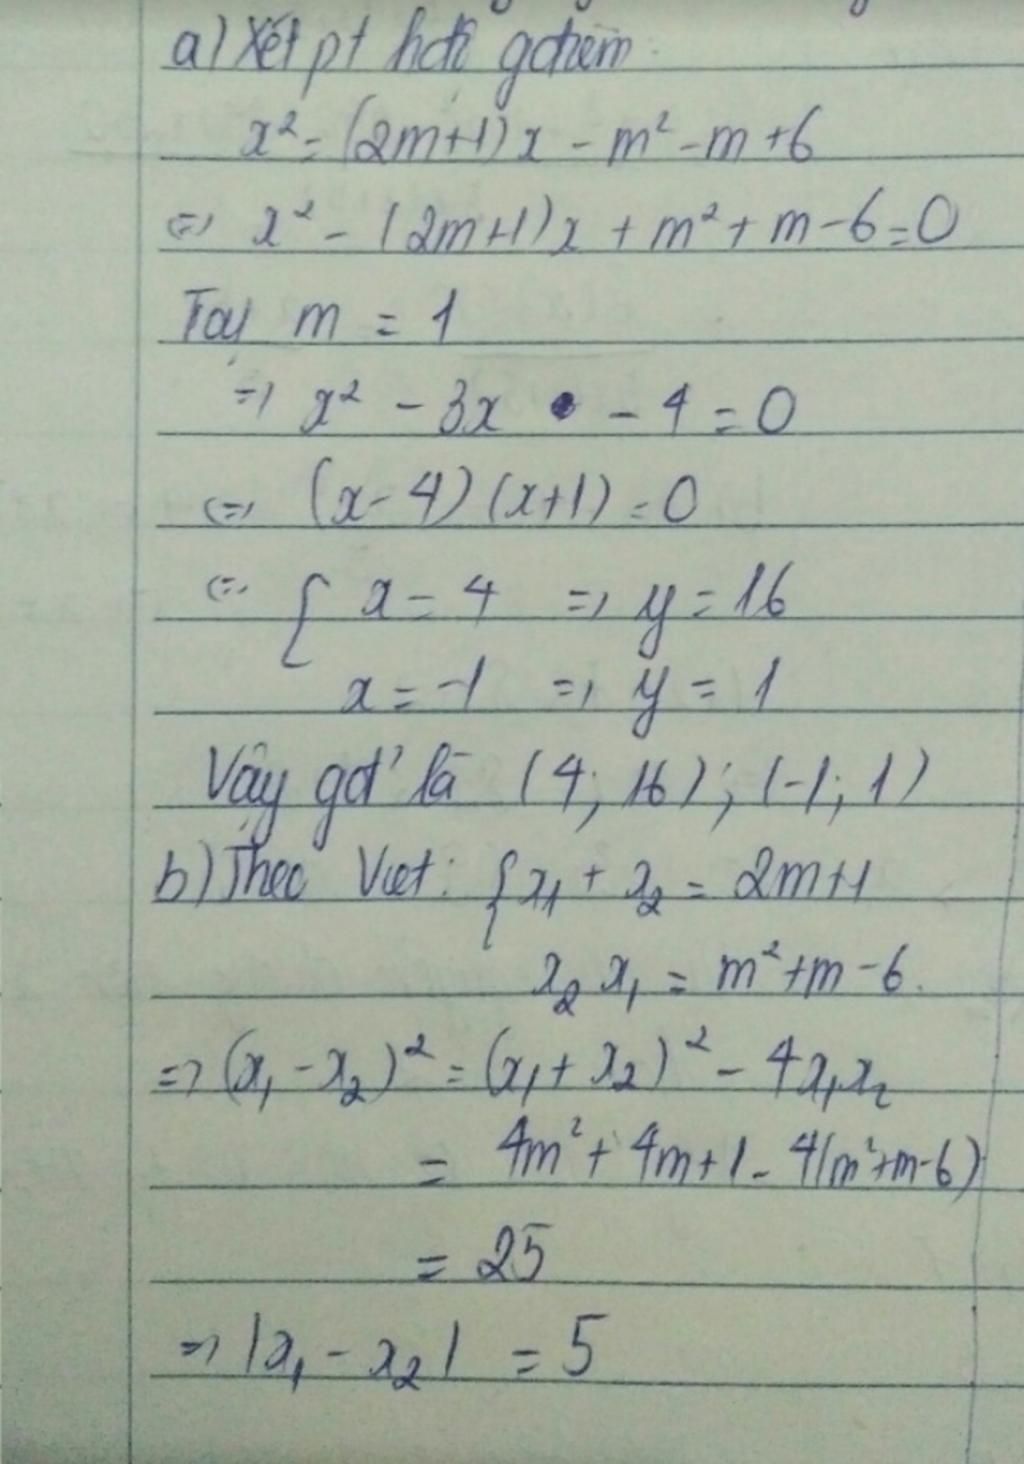 a) Xét pt hđộ gđiểm
x² = (2m+1)x - m² - m + 6
⇔ x² - (2m+1)x + m² + m - 6 = 0
Tạị m = 1
⇒ x² - 3x - 4 = 0
⇔ (x-4)(x+1) = 0
⇔ { x = 4 ⇒ y = 16
x = -1 ⇒ y = 1
Vậy gđ' là (4; 16); (-1; 1)
b) Theo Viet: { x₁ + x₂ = 2m+1
x₂x₁ = m² + m - 6.
⇒ (x₁ - x₂)² = (x₁ + x₂)² - 4x₁x₂
= 4m² + 4m + 1 - 4(m²+m-6)
= 25
⇒ |x₁ - x₂| = 5